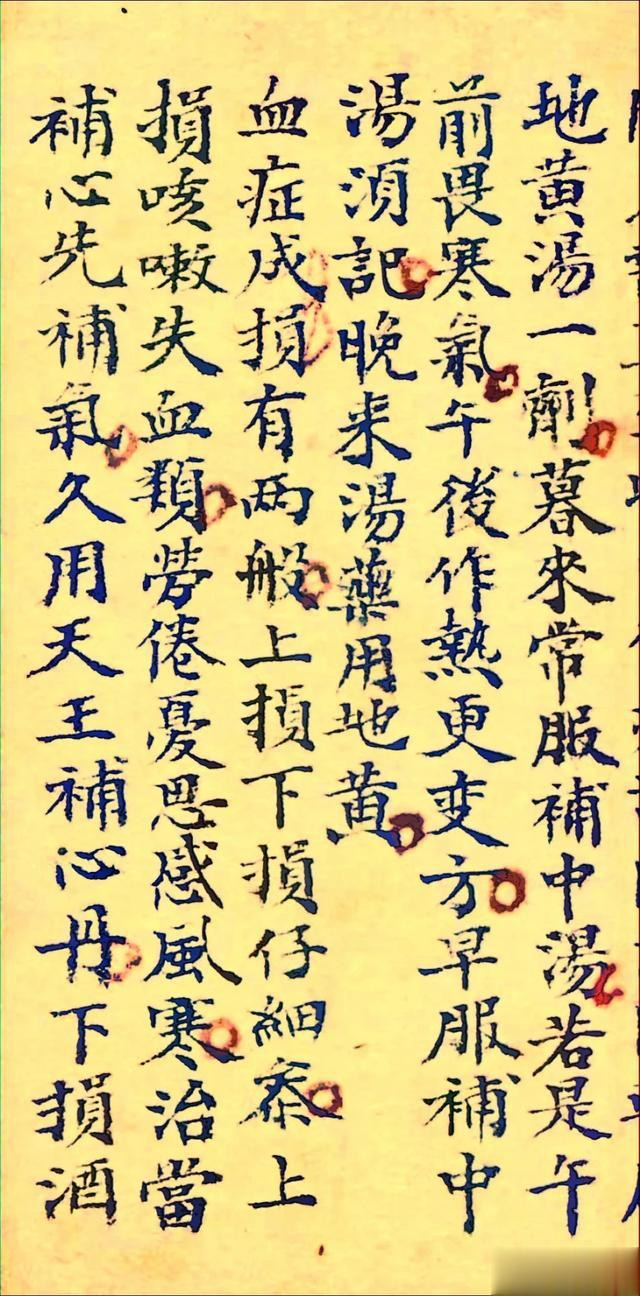 地黄湯一劑暮來常服補中湯若是午
前畏寒氣午後作熱更变方早服補中
湯須記晚来湯藥用地黄
血症成損有两般上損下損仔細叅上
損咳嗽失血類勞倦憂思感風寒治當
補心先補氣久用天王補心丹下損酒